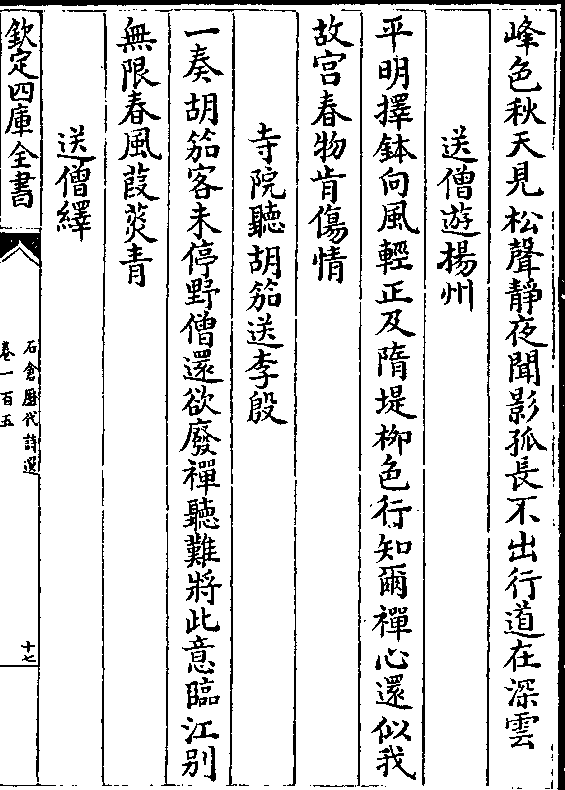 峰色秋天見松聲靜夜聞影孤長不出行道在深雲
送僧遊揚州
平明擇鉢向風輕正及隋堤柳色行知爾禪心還似我
故宫春物肯傷情
寺院聽胡笳送李殷
一奏胡笳客未停野僧還欲廢禪聽難將此意臨江别
無限春風葭菼青
送僧繹
欽定四庫全書
石倉歷代詩選
卷一百五
十七